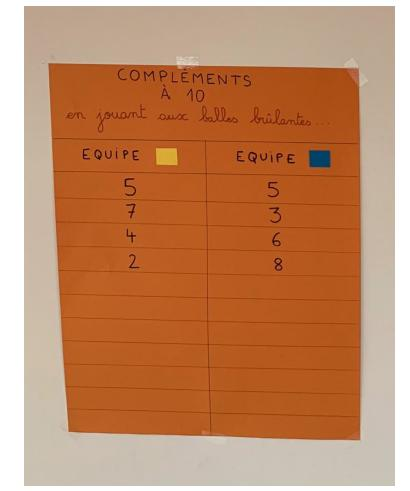 COMPLÉMENTS
À 10
en jouant aux balles brûlantes...
EQUIPE EQUIPE
5 5
7 3
4 6
2 8